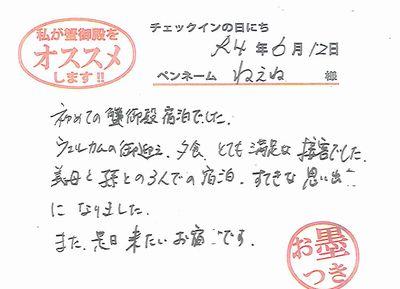 私が蟹御殿を
オススメ
します!!
チェックインの日にち
R4年6月12日
ペンネーム ねえね 様
初めての蟹御殿宿泊でした。
ウェルカムの御迎え、夕食、とても満足な接客でした。
義母と孫との3人での宿泊、すてきな思い出
になりました。
また、是日来たいお宿です。
お墨
つき